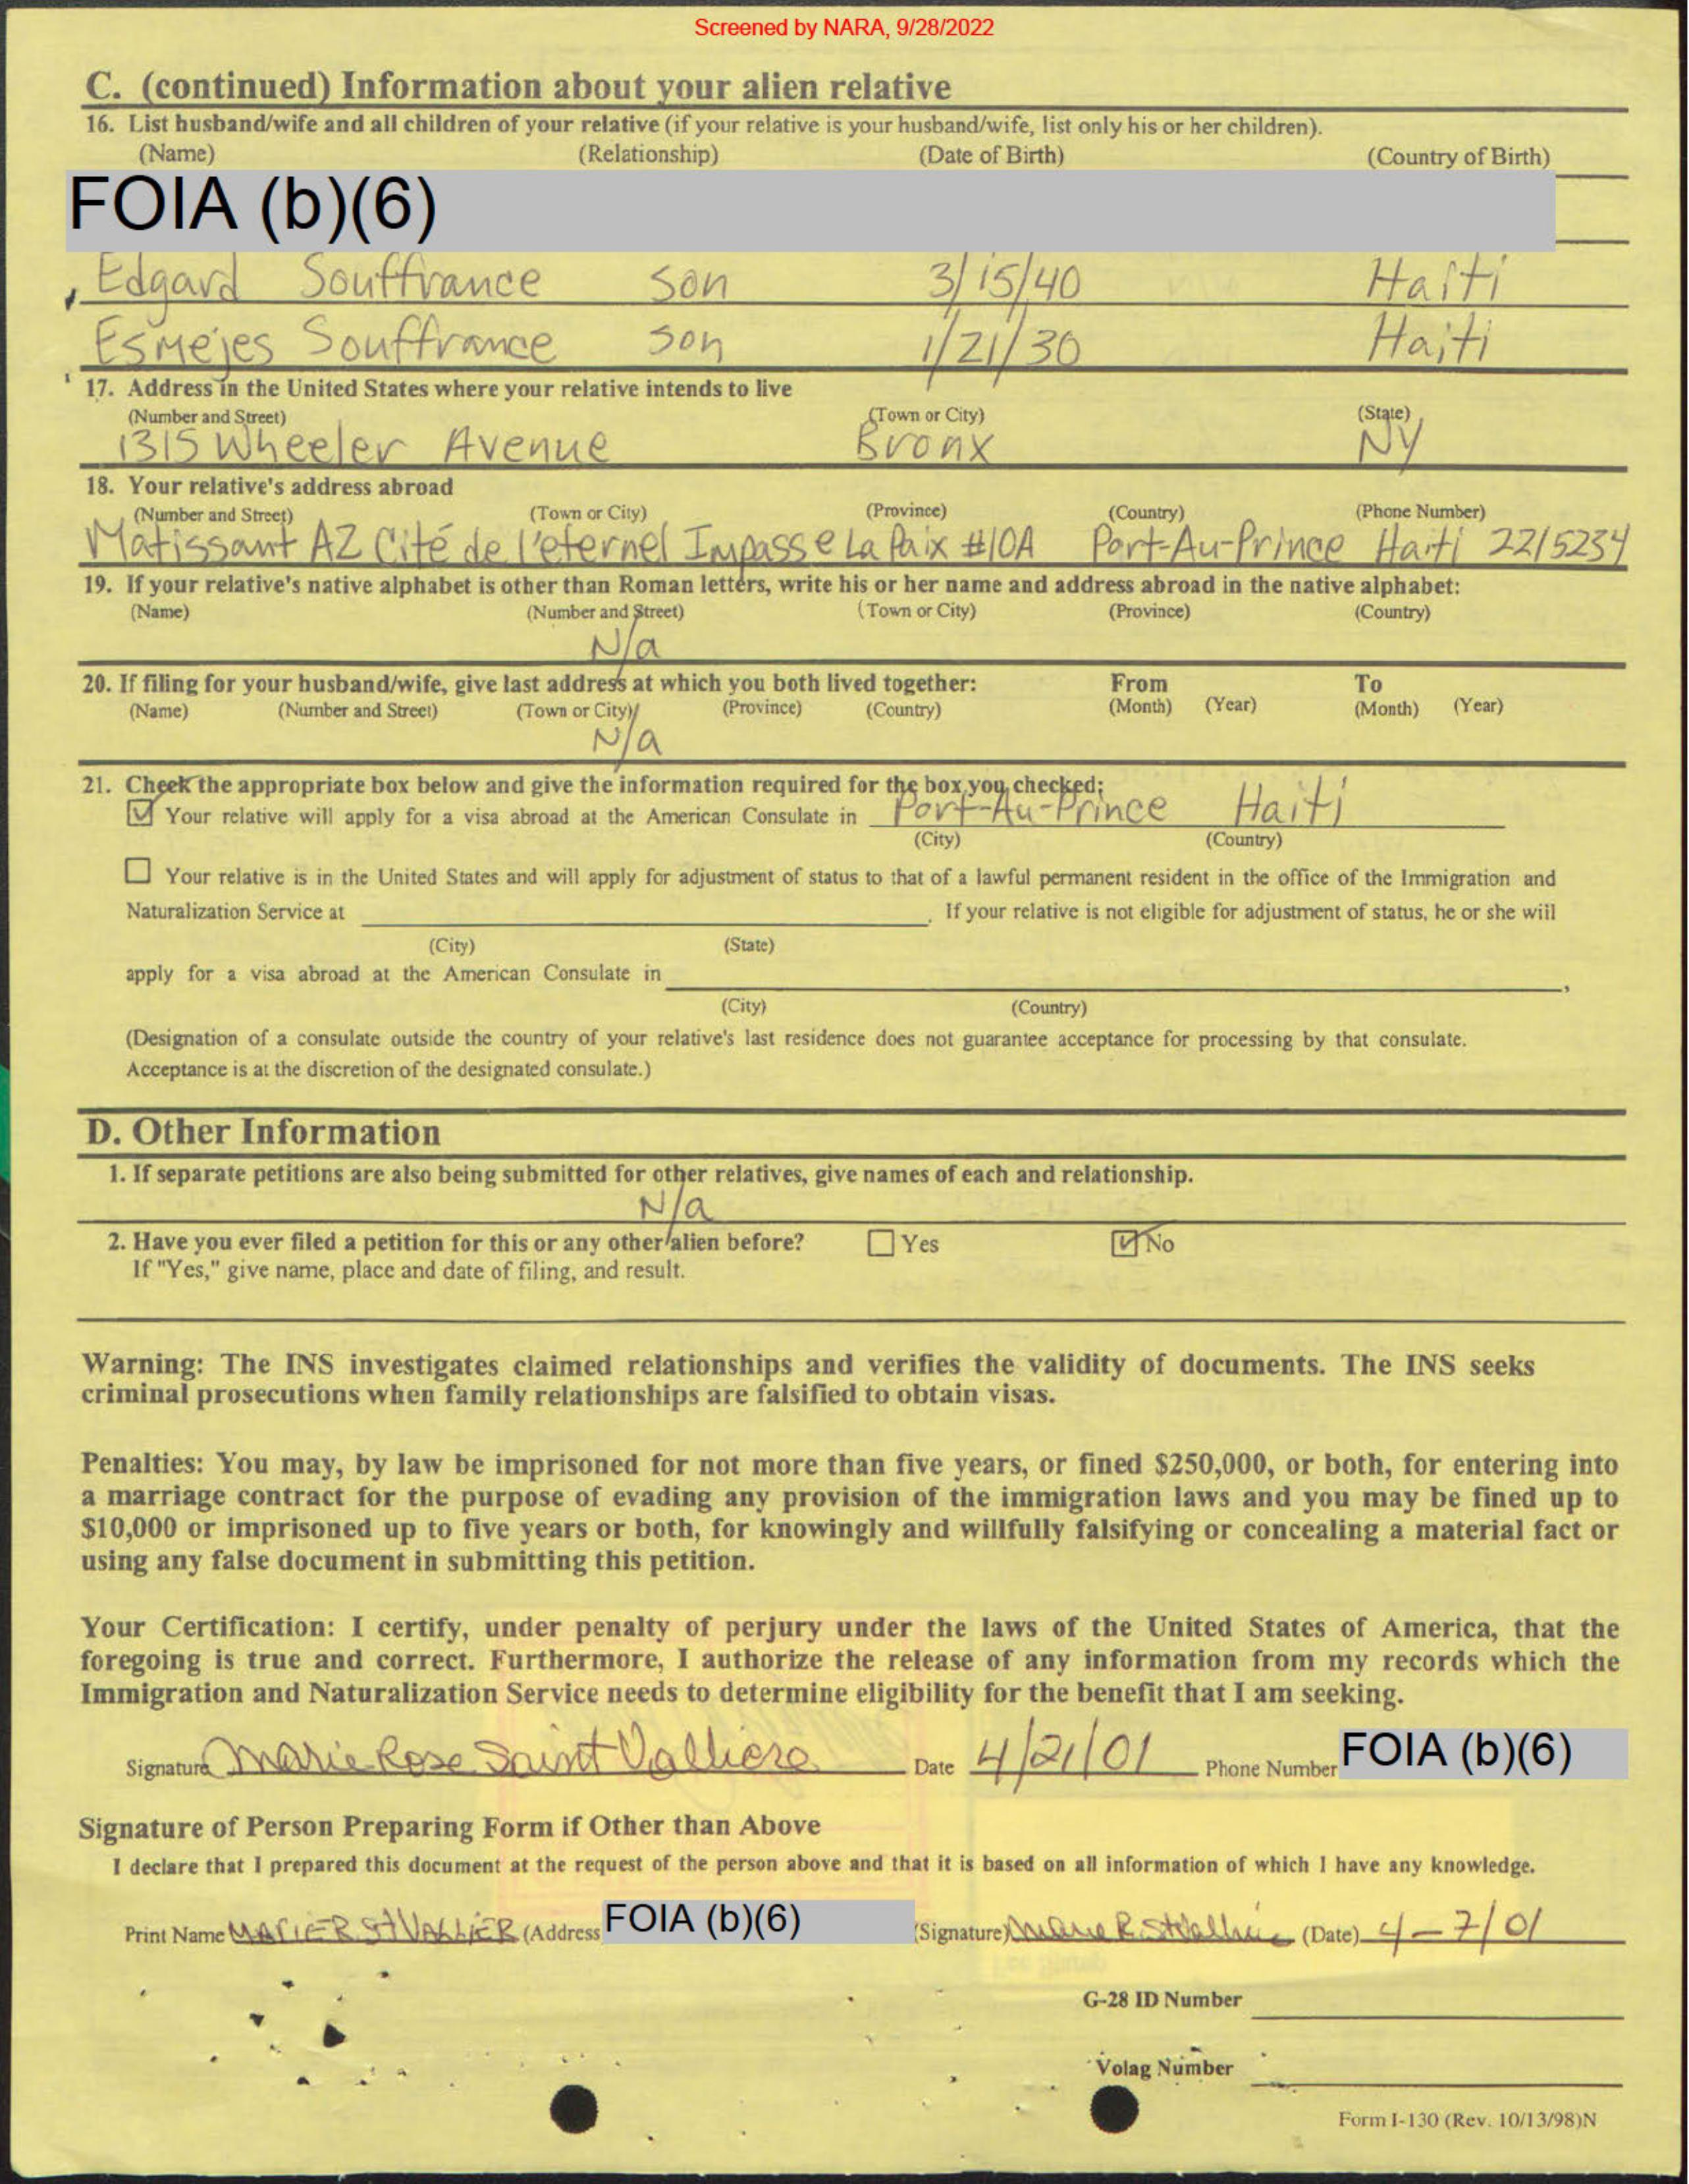 Screened by NARA, 9/28/2022
C. (continued) Information about your alien relative
16. List husband/wife and all children of your relative (if your relative is your husband/wife, list only his or her children).
(Name) (Relationship) (Date of Birth) (Country of Birth)
FOIA (b)(6)
Edgard Souffrance son 3/15/40 Haiti
Esmejes Souffrance son 1/21/30 Haiti
17. Address in the United States where your relative intends to live
(Number and Street) (Town or City) (State)
1315 Wheeler Avenue Bronx NY
18. Your relative's address abroad
(Number and Street) (Town or City) (Province) (Country) (Phone Number)
Matissant AZ Cité de l'eternel Impasse La Paix #10A Port-Au-Prince Haiti 2215234
19. If your relative's native alphabet is other than Roman letters, write his or her name and address abroad in the native alphabet:
(Name) (Number and Street) (Town or City) (Province) (Country)
N/a
20. If filing for your husband/wife, give last address at which you both lived together: From To
(Name) (Number and Street) (Town or City) (Province) (Country) (Month) (Year) (Month) (Year)
N/a
21. Check the appropriate box below and give the information required for the box you checked:
Your relative will apply for a visa abroad at the American Consulate in Port-Au-Prince Haiti
(City) (Country)
Your relative is in the United States and will apply for adjustment of status to that of a lawful permanent resident in the office of the Immigration and
Naturalization Service at . If your relative is not eligible for adjustment of status, he or she will
(City) (State)
apply for a visa abroad at the American Consulate in ,
(City) (Country)
(Designation of a consulate outside the country of your relative's last residence does not guarantee acceptance for processing by that consulate.
Acceptance is at the discretion of the designated consulate.)
D. Other Information
1. If separate petitions are also being submitted for other relatives, give names of each and relationship.
N/a
2. Have you ever filed a petition for this or any other alien before? Yes No
If "Yes," give name, place and date of filing, and result.
Warning: The INS investigates claimed relationships and verifies the validity of documents. The INS seeks
criminal prosecutions when family relationships are falsified to obtain visas.
Penalties: You may, by law be imprisoned for not more than five years, or fined $250,000, or both, for entering into
a marriage contract for the purpose of evading any provision of the immigration laws and you may be fined up to
$10,000 or imprisoned up to five years or both, for knowingly and willfully falsifying or concealing a material fact or
using any false document in submitting this petition.
Your Certification: I certify, under penalty of perjury under the laws of the United States of America, that the
foregoing is true and correct. Furthermore, I authorize the release of any information from my records which the
Immigration and Naturalization Service needs to determine eligibility for the benefit that I am seeking.
Signature Marie Rose Saint Valliere Date 4/21/01 Phone Number FOIA (b)(6)
Signature of Person Preparing Form if Other than Above
I declare that I prepared this document at the request of the person above and that it is based on all information of which I have any knowledge.
Print Name MARIE R St VALLIER (Address) FOIA (b)(6) (Signature) Marie R. (Date) 4-7/01
G-28 ID Number
Volag Number
Form I-130 (Rev. 10/13/98)N